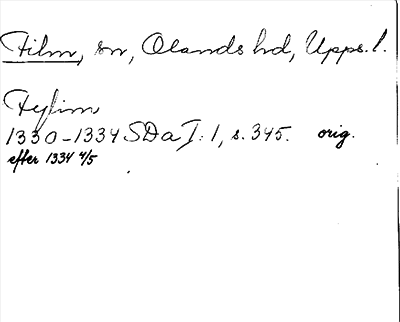 Film, sn, Olands hd, Upps. l.
Fylim
1330-1334 SDa I: 1, s. 345. orig.
efter 1334 4/5